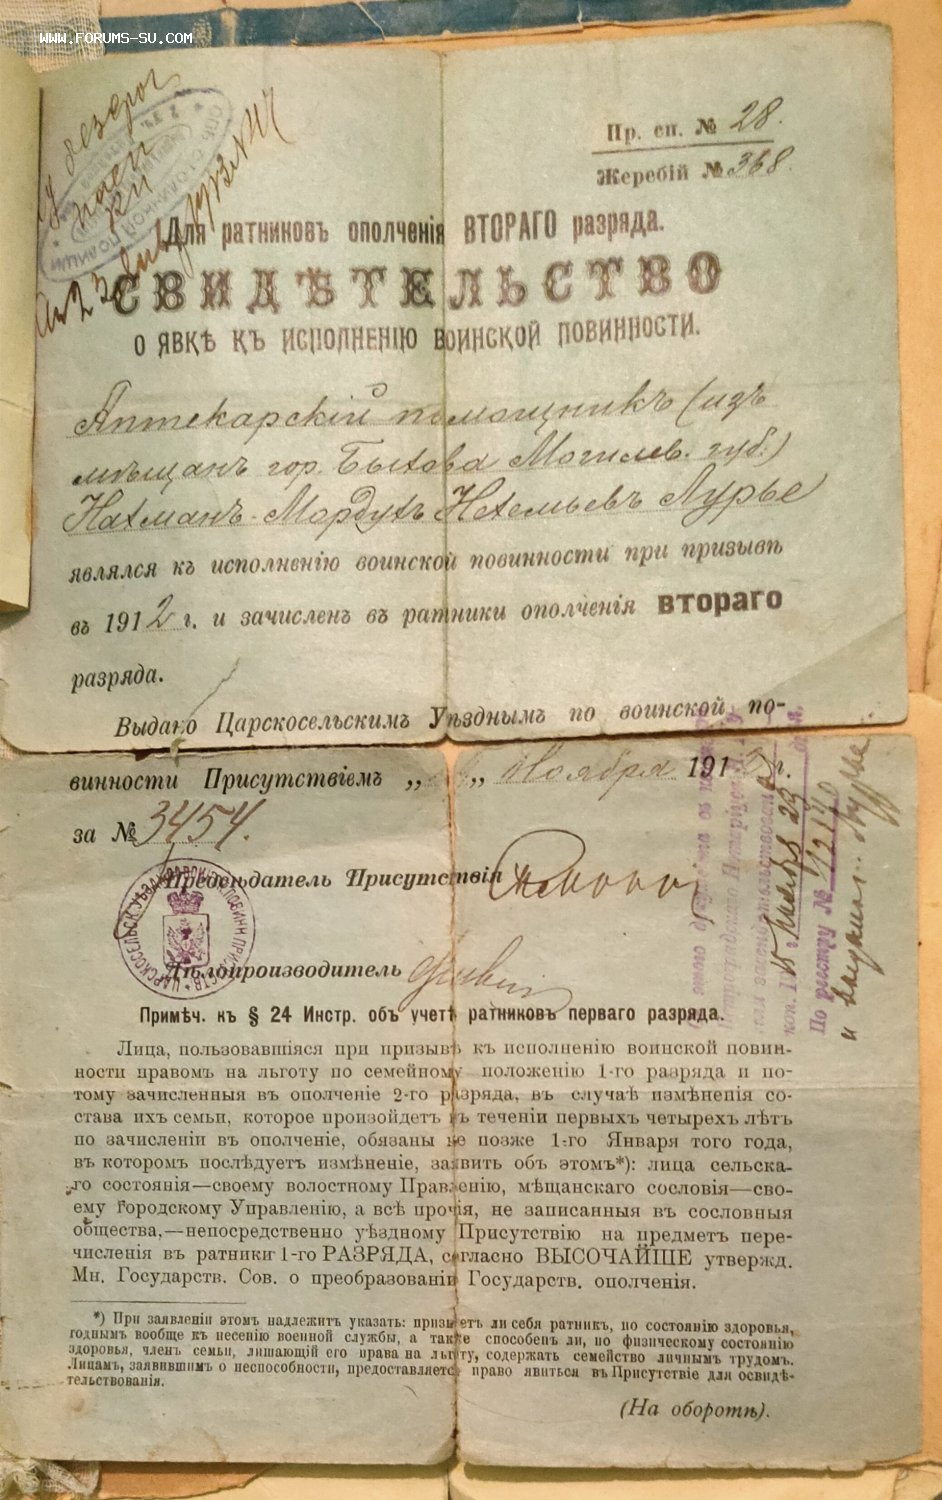 WWW.FORUMS-SU.COM
Пр. сп. № 28.
Жеребій № 368.
Для ратниковъ ополченія ВТОРАГО разряда.
СВИДѢТЕЛЬСТВО
О ЯВКѢ КЪ ИСПОЛНЕНІЮ ВОИНСКОЙ ПОВИННОСТИ.
Аптекарскій помощникъ (изъ
мѣщанъ гор. Быхова Могилев. губ.)
Нахманъ-Мордухъ Лурье
являлся къ исполненію воинской повинности при призывѣ
въ 1912 г. и зачисленъ въ ратники ополченія второго
разряда.
Выдано Царскосельскимъ Уѣзднымъ по воинской по-
винности Присутствіемъ „ „ Ноября 1912 г.
за № 3454.
Предсѣдатель Присутствія
Дѣлопроизводитель
Примѣч. къ § 24 Инстр. объ учетѣ ратниковъ перваго разряда.
Лица, пользовавшіяся при призывѣ къ исполненію воинской повин-
ности правомъ на льготу по семейному положенію 1-го разряда и по-
тому зачисленныя въ ополченіе 2-го разряда, въ случаѣ измѣненія со-
става ихъ семьи, которое произойдетъ въ теченіи первыхъ четырехъ лѣтъ
по зачисленіи въ ополченіе, обязаны не позже 1-го Января того года,
въ которомъ послѣдуетъ измѣненіе, заявить объ этомъ*): лица сельска-
го состоянія—своему волостному Правленію, мѣщанскаго сословія—сво-
ему Городскому Управленію, а всѣ прочія, не записанныя въ сословныя
общества,—непосредственно уѣздному Присутствію на предметъ пере-
численія въ ратники 1-го РАЗРЯДА, согласно ВЫСОЧАЙШЕ утвержд.
Мн. Государств. Сов. о преобразованіи Государств. ополченія.
*) При заявленіи этомъ надлежитъ указать: признаетъ ли себя ратникъ, по состоянію здоровья,
годнымъ вообще къ несенію военной службы, а также способенъ ли, по физическому состоянію
здоровья, членъ семьи, лишающій его права на льготу, содержать семейство личнымъ трудомъ.
Лицамъ, заявившимъ о неспособности, предоставляется право явиться въ Присутствіе для освидѣ-
тельствованія.
(На оборотѣ).
По реестру №